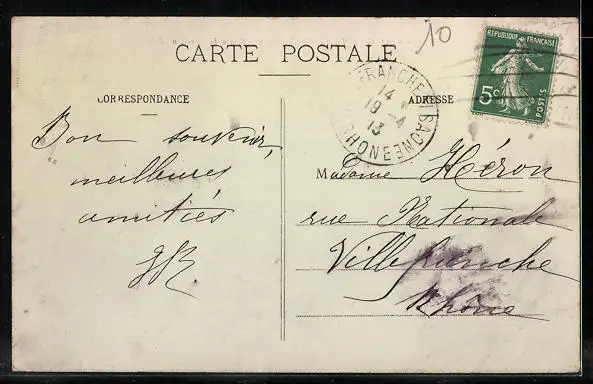 10
CARTE POSTALE
REPUBLIQUE FRANÇAISE
5c
POSTES
CORRESPONDANCE
ADRESSE
FRANCHE
14
19-4
13
RHONE
Bon souvenir,
meilleures
amitiés
Madame Héron
rue Nationale
Villefranche
Rhône